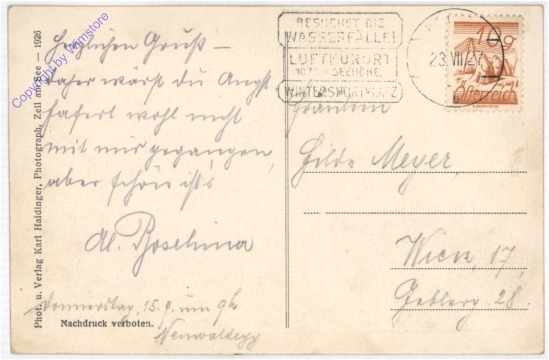 Herzlichen Gruß –
daher wärst du Angst
hafert wohl nicht
mit mir gegangen,
aber schön ists
Al. Boschina
Donnerstag, 15. 9. um 9h
Neuwaldegg
Nachdruck verboten.
Phot. u. Verlag Karl Haidinger, Photograph, Zell am See – 1926
Copyright by Wimstore
BESUCHET DIE
WASSERFÄLLE!
LUFTKURORT
SEEHÖHE
WINTERSPORTPLATZ
23.VII.27
10g
Österreich
Fräulein
Hilde Meyer,
Wien, 17,
Geblerg. 28.